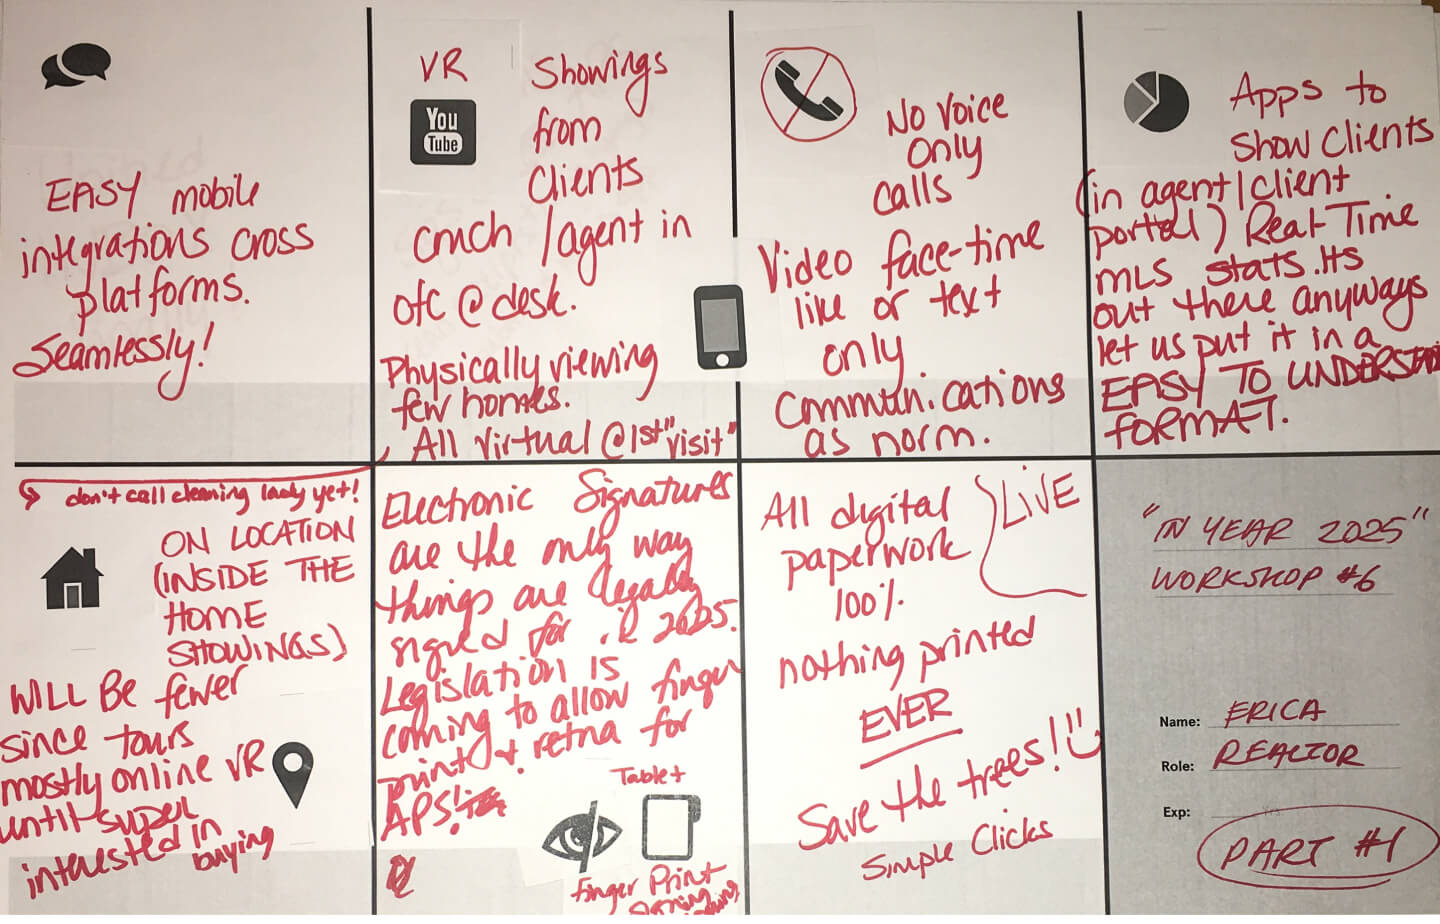 EASY mobile
integrations cross
platforms.
Seamlessly!
VR
You
Tube
Showings
from
Clients
couch /agent in
ofc @ desk.
Physically viewing
few homes.
All virtual @ 1st "visit"
No Voice
Only
calls
Video face-time
like or text
only
Communications
as norm.
Apps to
Show Clients
(in agent/client
portal) Real-Time
MLS stats. Its
out there anyways
let us put it in a
EASY TO UNDERSTAND
FORMAT.
don't call cleaning lady yet!
ON LOCATION
(INSIDE THE
HOME
SHOWINGS)
WILL BE fewer
since tours
mostly online VR
until super
interested in
buying
Electronic Signatures
are the only way
things are legally
signed for in 2025.
Legislation is
coming to allow finger
print & retna for
APS!
Tablet
finger Print
All digital
paperwork
100%
LIVE
nothing printed
EVER
Save the trees!
Simple Clicks
"IN YEAR 2025"
WORKSHOP #6
Name: ERICA
Role: REALTOR
Exp:
PART #1